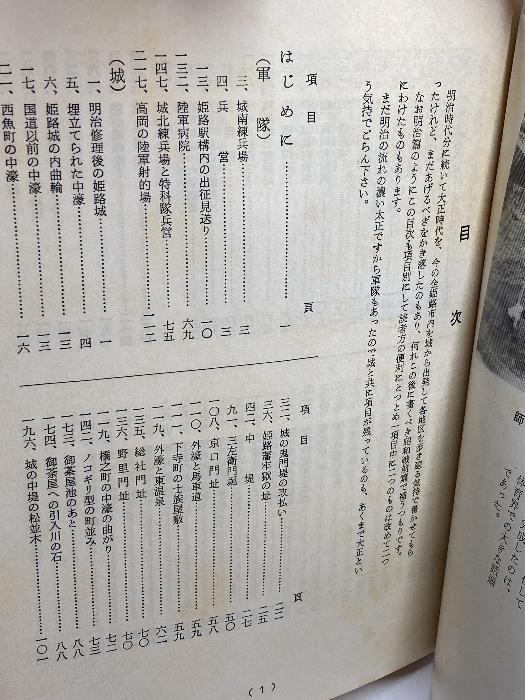 目次
明治時代分に続いて大正時代を、今の全姫路市内を城から出発して各地区を歩き廻る気持で書かせてもら
ったけれど、まだあげるべきをかき落したのもあり、何れこの後に書くべき昭和戦前篇で補うつもりです。
なお明治篇のようにこの目次も項目別にして読者方の便利にとつとめ一項目中に二つのものは改めて二つ
にわけたものもあります。
まだ明治の流れの濃い大正ですから軍隊もあったので城と共に項目が残っているのも、あくまで大正とい
う気持でごらん下さい。
項目 頁
はじめに 一
(軍隊)
三、城南練兵場 三
四、兵営 三
一三、姫路駅構内の出征見送り 一〇
一三二、陸軍病院 六九
一四七、城北練兵場と特科隊兵営 七五
二一七、高岡の陸軍射的場 一一二
(城)
一、明治修理後の姫路城 一
五、埋立てられた中濠 四
六、姫路城の内曲輪 一三
一七、国道以前の中濠 一三
二一、西魚町の中濠 一六
項目 頁
三二、城の鬼門堤の玖払い 二二
三六、姫路藩牢獄の址 二五
四二、中堤 二七
九一、三左衛門堀 五〇
一〇八、京口門址 五八
一一〇、外濠と馬車道 五九
一一一、下寺町の士族屋敷 五九
一一九、外濠と東温泉 六二
一三五、総社門址 七〇
一三六、野里門址 七〇
一三九、橋之町の中濠の曲がり 七二
一四二、ノコギリ型の町並み 七三
一七三、御茶屋池のあと 八八
一七四、御茶屋への引入川の石 八八
一九六、城の中堤の松並木 一〇一
(1)
であった。